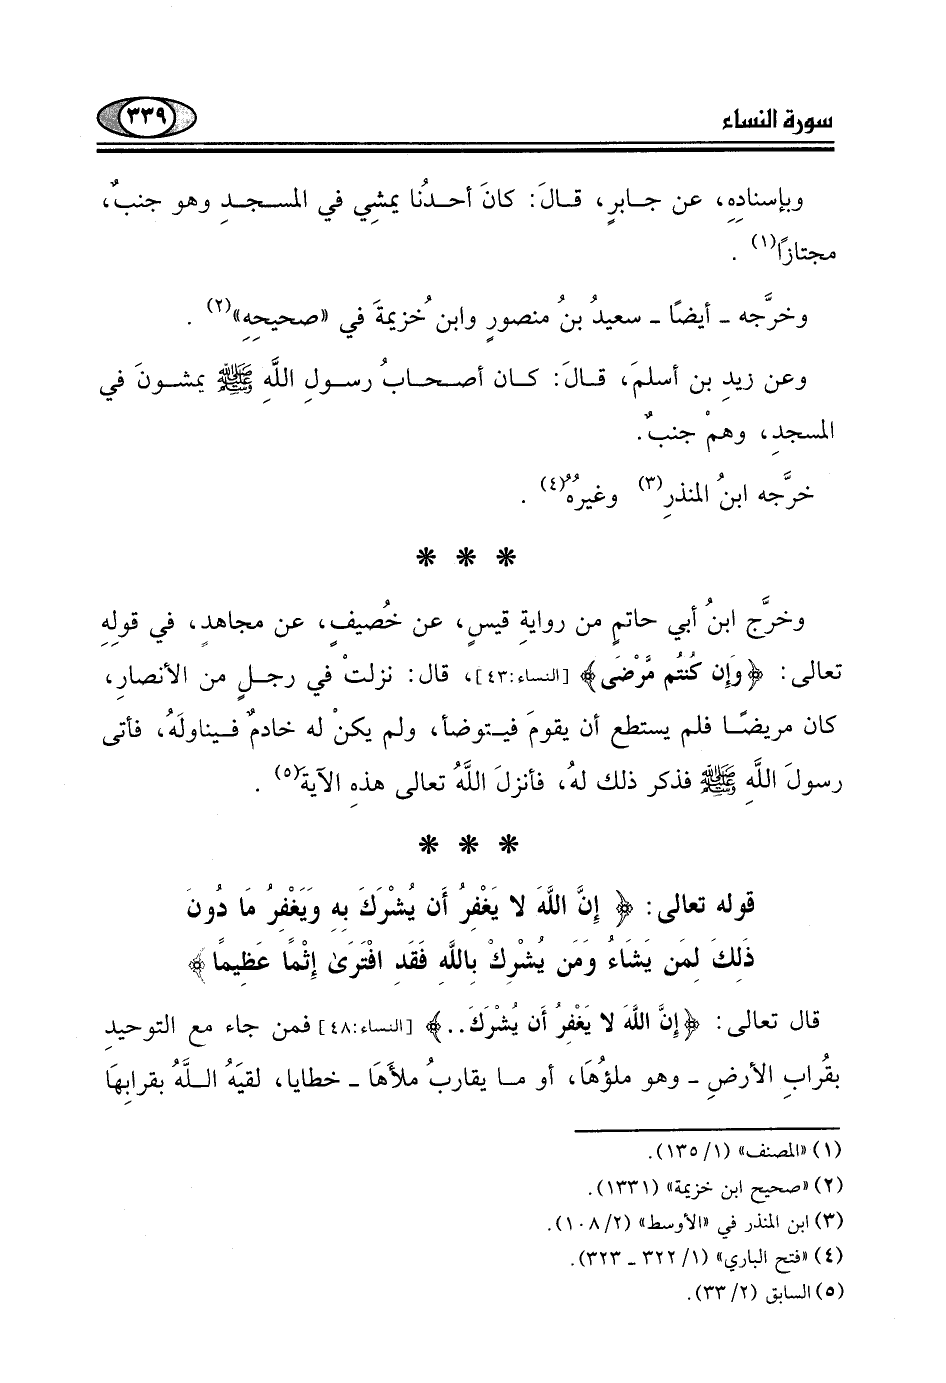 سورة النساء
٣٣٩
وبإسنادِهِ، عن جابرٍ، قالَ: كانَ أحدُنا يمشِي في المسجدِ وهو جنبٌ،
مجتازًا(١) .
وخرَّجه ـ أيضًا ـ سعيدُ بنُ منصورٍ وابن خُزيمةَ في «صحيحِهِ»(٢) .
وعن زيدِ بن أسلمَ، قالَ: كان أصحابُ رسولِ اللَّهِ ﷺ يمشونَ في
المسجدِ، وهمْ جنبٌ.
خرَّجه ابنُ المنذرِ(٣) وغيرُهُ(٤) .
* * *
وخرَّج ابنُ أبي حاتمٍ من روايةِ قيسٍ، عن خُصيفٍ، عن مجاهدٍ، في قولِهِ
تعالى: ﴿وَإِن كُنتُم مَّرْضَى﴾ [النساء:٤٣]، قال: نزلتْ في رجلٍ من الأنصارِ،
كان مريضًا فلم يستطع أن يقومَ فيتوضأ، ولم يكنْ له خادمٌ فيناولَهُ، فأتى
رسولَ اللَّهِ ﷺ فذكر ذلك لهُ، فأنزلَ اللَّهُ تعالى هذهِ الآيةَ(٥) .
* * *
قوله تعالى: ﴿ إِنَّ اللَّهَ لا يَغْفِرُ أَن يُشْرَكَ بِهِ وَيَغْفِرُ مَا دُونَ
ذَلِكَ لِمَن يَشَاءُ وَمَن يُشْرِكْ بِاللَّهِ فَقَدِ افْتَرَىٰ إِثْمًا عَظِيمًا ﴾
قال تعالى: ﴿إِنَّ اللَّهَ لا يَغْفِرُ أَن يُشْرَكَ..﴾ [النساء:٤٨] فمن جاء مع التوحيدِ
بقُرابِ الأرضِ ـ وهو ملؤُهَا، أو ما يقاربُ ملأَهَا ـ خطايا، لقيَهُ اللَّهُ بقرابِهَا
(١) «المصنف» (١/ ١٣٥).
(٢) «صحيح ابن خزيمة» (١٣٣١).
(٣) ابن المنذر في «الأوسط» (٢/ ١٠٨).
(٤) «فتح الباري» (١/ ٣٢٢ ـ ٣٢٣).
(٥) السابق (٢/ ٣٣).